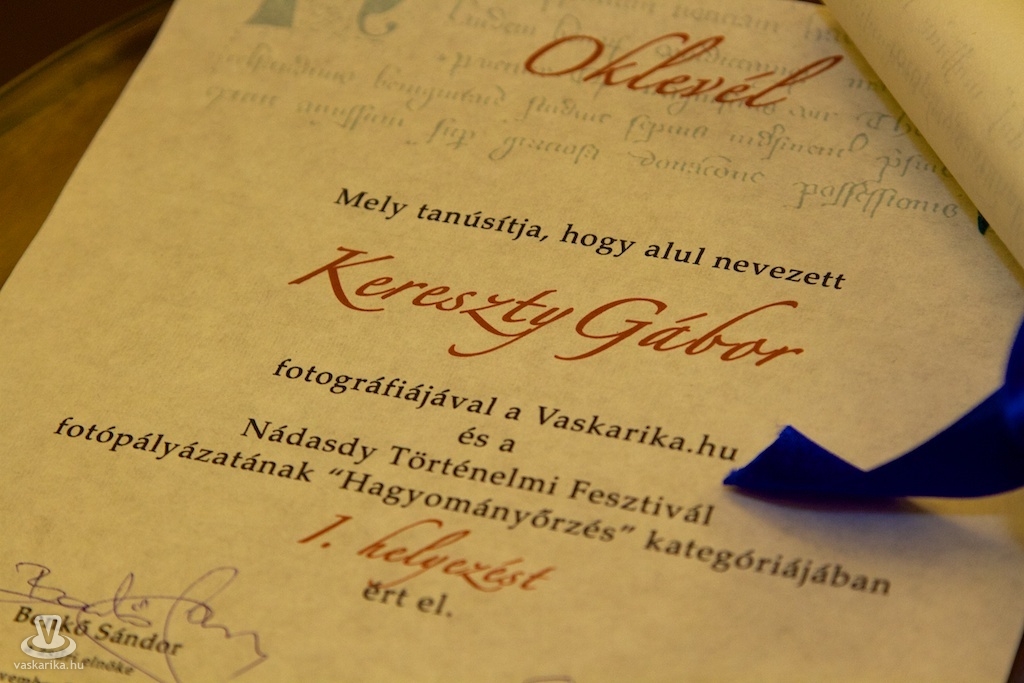 Oklevél
Mely tanúsítja, hogy alul nevezett
Kereszty Gábor
fotográfiájával a Vaskarika.hu
és a
Nádasdy Történelmi Fesztivál
fotópályázatának “Hagyományőrzés” kategóriájában
1. helyezést
ért el.
Sándor
elnöke
vaskarika.hu